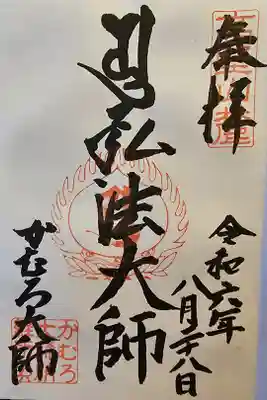 奉拝
令和六年
八月二十八日
弘法大師
かむろ大師
かむろ